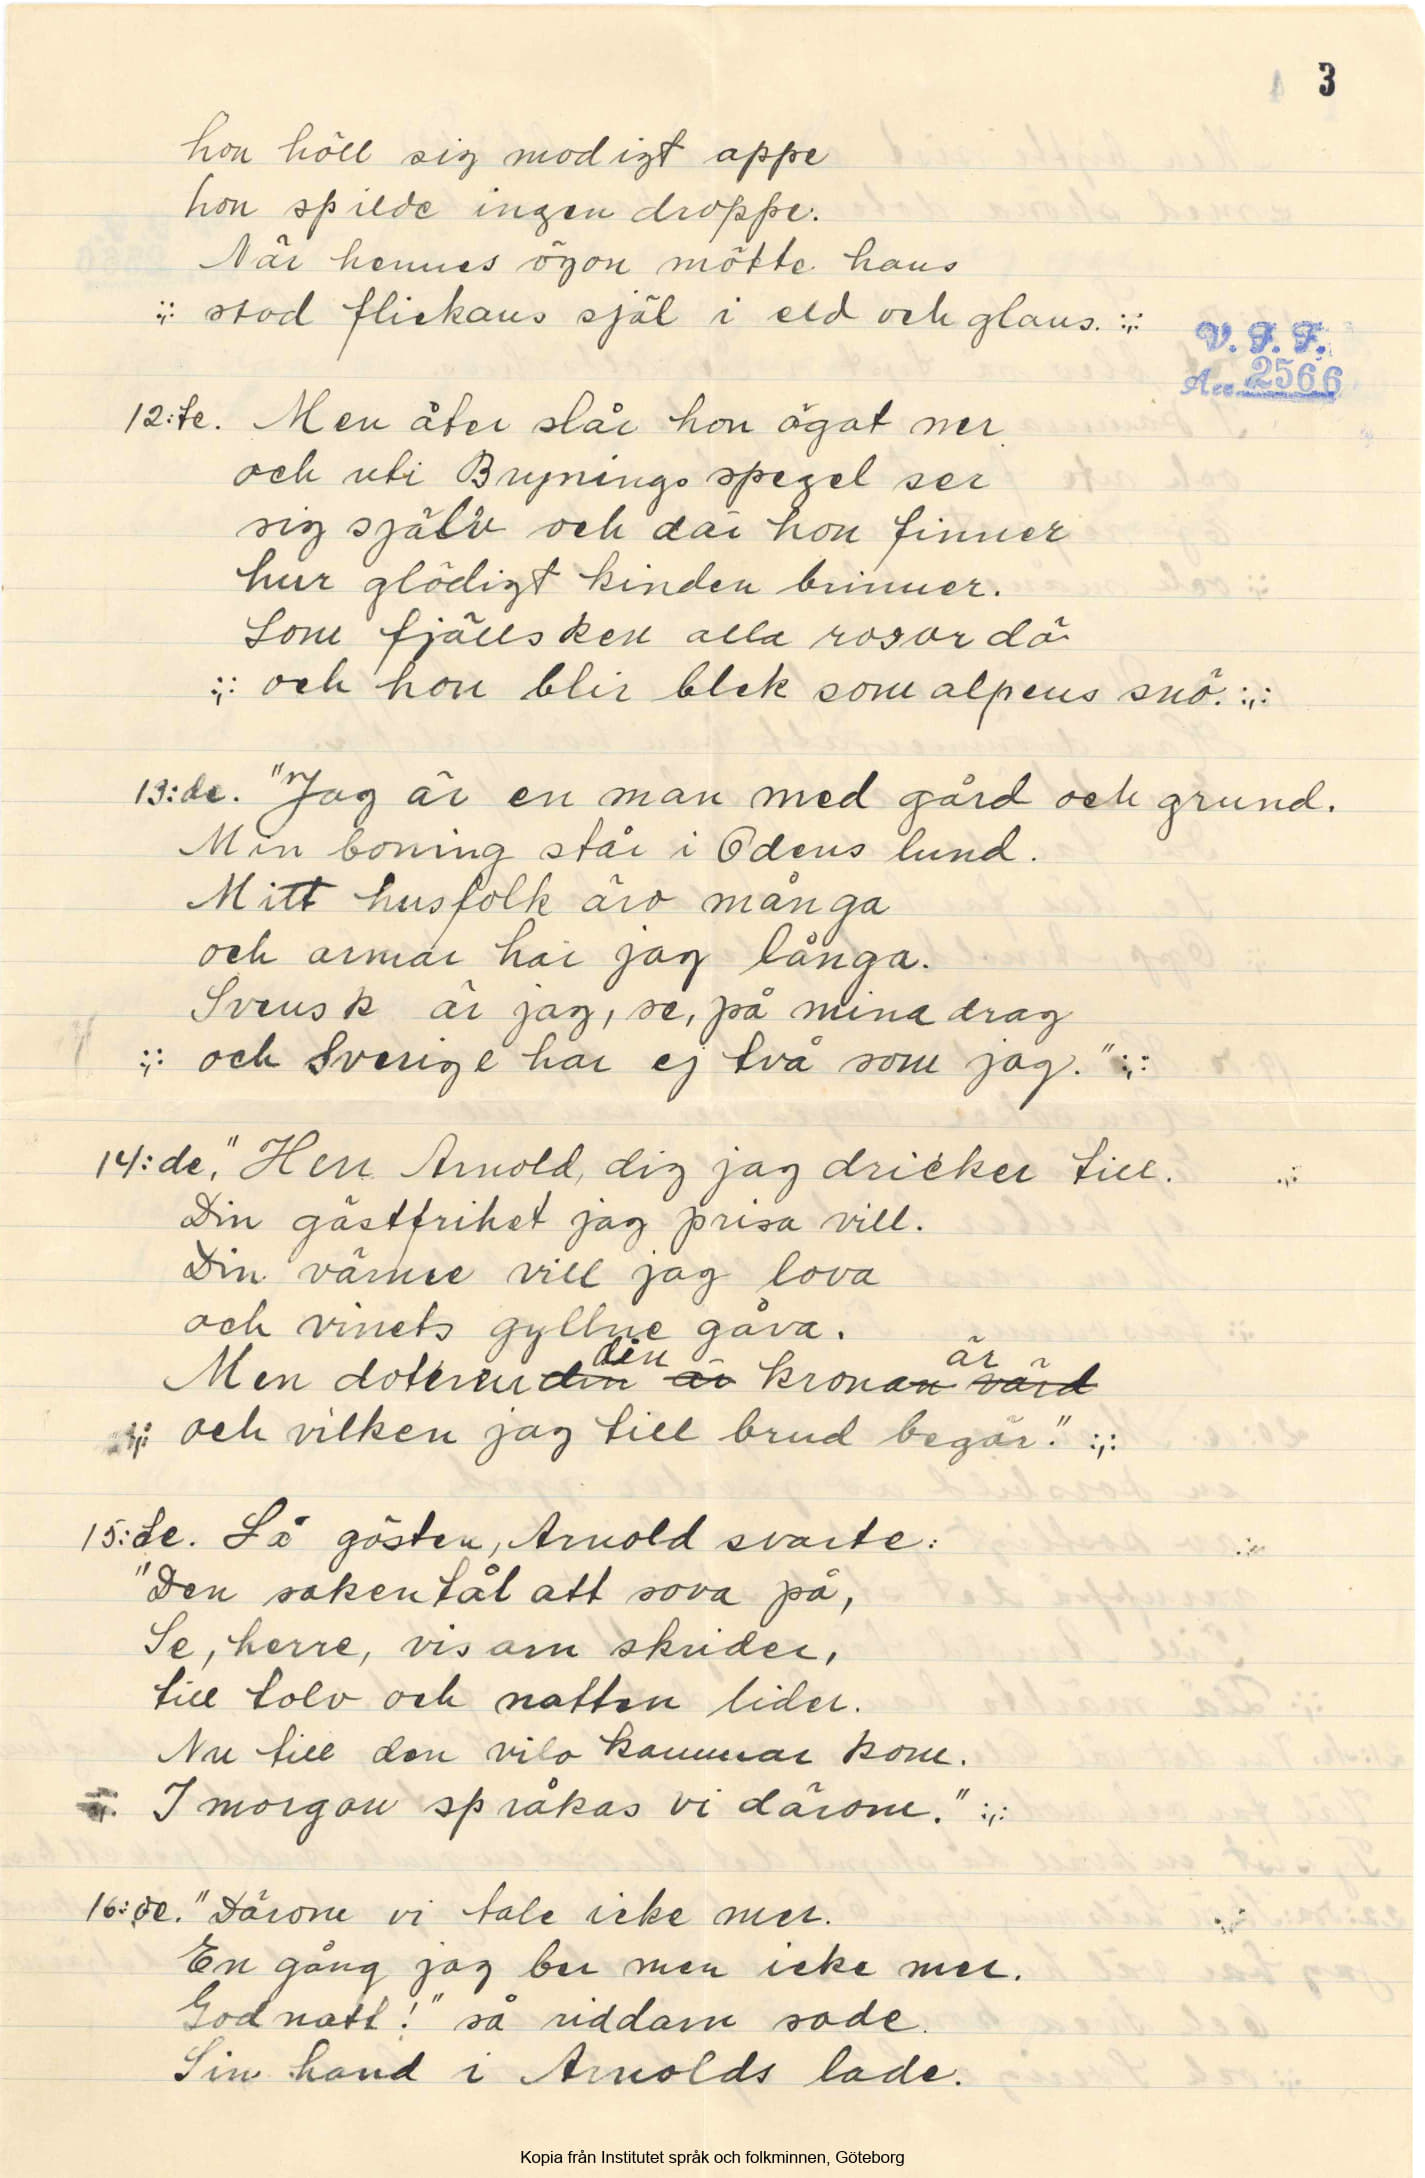 3
hon höll sig modigt oppe
hon spilde ingen droppe.
När hennes ögon mötte hans
:,: stod flickans själ i eld och glans. :,:
V. F. F.
Acc. 2566
12:te. Men åter slår hon ögat ner
och uti Brynings spegel ser
sig själv och där hon finner
hur glödigt kinden brinner.
Som fjällsken alla rosor dö
:,: och hon blir blek som alpens snö. :,:
13:de. "Jag är en man med gård och grund.
Min boning står i Odens lund.
Mitt husfolk äro många
och armar har jag långa.
Svensk är jag, se, på mina drag
:,: och Sverige har ej två som jag." :,:
14:de. "Herr Arnold, dig jag dricker till.
Din gästfrihet jag prisa vill.
Din värme vill jag lova
och vinets gyllne gåva.
din är
Men dottren din är kronan värd
:,: och vilken jag till brud begär." :,:
15:de. Så gästen, Arnold svarte:
"Den saken tål att sova på,
Se, herre, visarn skrider,
till tolv och natten lider.
Nu till den vilo kammar kom.
:,: I morgon språkas vi därom." :,:
16:de. "Därom vi tale icke mer.
En gång jag ber men icke mer.
God natt!" så riddarn sade.
Sin hand i Arnolds lade.
Kopia från Institutet språk och folkminnen, Göteborg